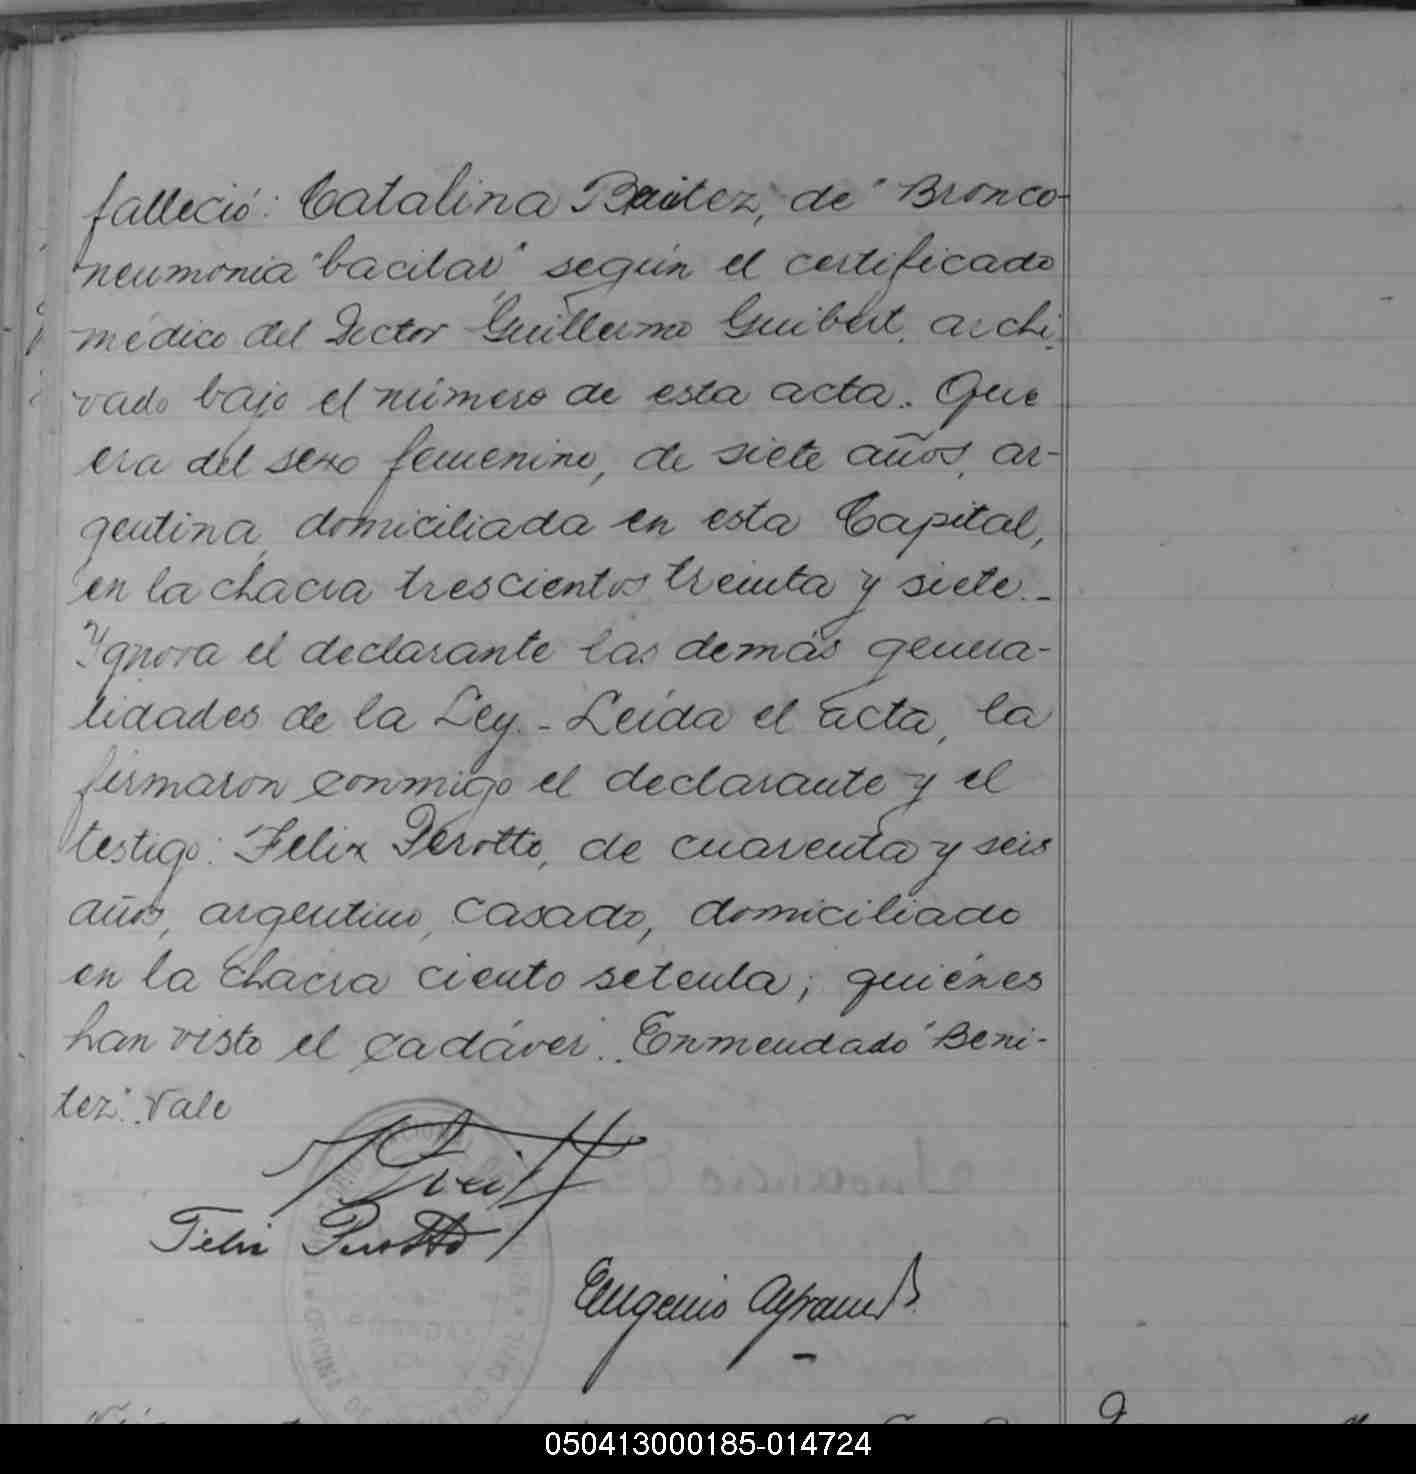 falleció: Catalina Benitez, de "Bronco-
neumonia "bacilar" según el certificado
médico del Doctor Guillermo Guibert, archi-
vado bajo el número de esta acta. Que
era del sexo femenino, de siete años, ar-
gentina, domiciliada en esta Capital,
en la chacra trescientos treinta y siete.-
Ygnora el declarante las demás genera-
lidades de la Ley.- Leida el acta, la
firmaron conmigo el declarante y el
testigo: Felix Perotto, de cuarenta y seis
años, argentino, casado, domiciliado
en la chacra ciento setenta; quiénes
han visto el cadáver. Enmendado "Beni-
tez". Vale
Felix Perotto
Eugenio
050413000185-014724